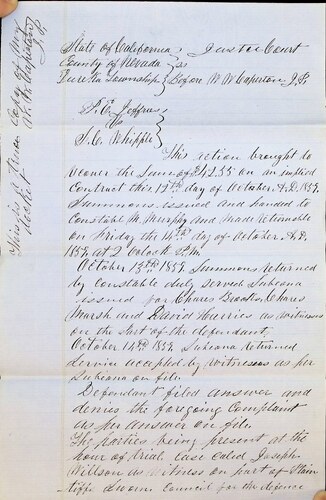 State of California } Justice Court
County of Nevada } ss
Eureka Township } Before W. W. Caperton J.P.
S. E. Jeffries
vs
S. C. Whipple
This action brought to
recover the Sum of $42.55 on an implied
contract this 12th day of October A.D. 1859.
Summons issued and handed to
Constable M. Murphy and Made returnable
on Friday the 14th day of October A.D.
1859, at 2 Oclock P.M.
October 13th 1859. Summons returned
by constable duly served Subpena
issued for Charles
Marsh and David Harries as witnesses
on the part of the defendant,
October 14th 1859. Subpena returned
service accepted by witnesses as per
Subpena on file.
Defendant filed answer and
denies the foregoing complaint
as per answer on file.
The parties being present at the
hour of trial case called Joseph
Willson as Witness on part of Plain
tiffs Sworn Council for the defence
This is a True Copy of my
docket W. W. Caperton
J.P.